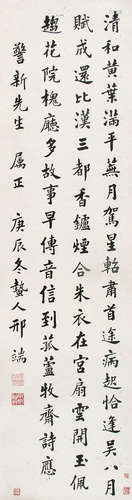 清和黄葉滿平蕪月駕星軺肅首途病起恰逢吳八月
賦成還比漢三都香鑪煙合朱衣在宮扇雲開玉佩
趨花院槐廳多故事早傳音信到菰蘆牧齋詩應
警新先生 属正 庚辰冬蟄人邢端